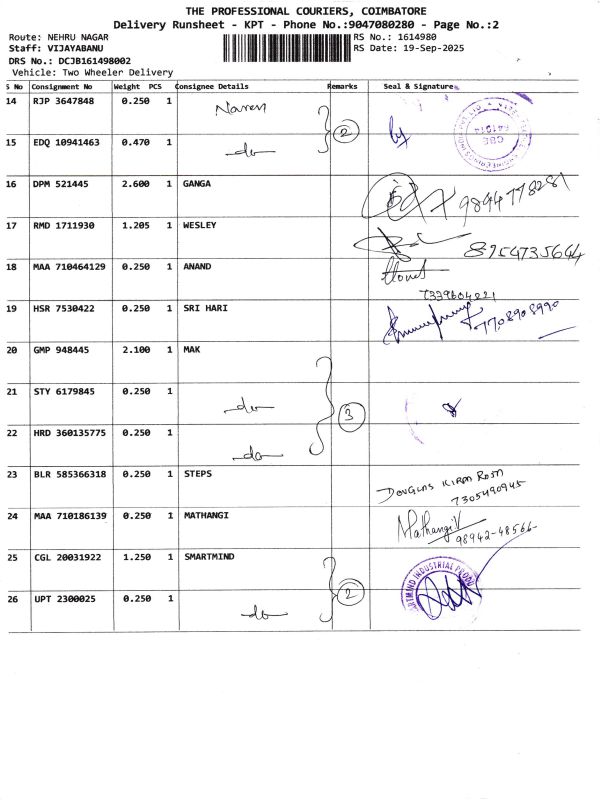 THE PROFESSIONAL COURIERS, COIMBATORE
Delivery Runsheet - KPT - Phone No.:9047080280 - Page No.:2
Route: NEHRU NAGAR RS No.: 1614980
Staff: VIJAYABANU RS Date: 19-Sep-2025
DRS No.: DCJB161498002
Vehicle: Two Wheeler Delivery
S No Consignment No Weight PCS Consignee Details Remarks Seal & Signature
14 RJP 3647848 0.250 1 Naren
15 EDQ 10941463 0.470 1 do 2
16 DPM 521445 2.600 1 GANGA 9894778281
17 RMD 1711930 1.205 1 WESLEY 8954735644
18 MAA 710464129 0.250 1 ANAND
7339604221
19 HSR 7530422 0.250 1 SRI HARI 7708908990
20 GMP 948445 2.100 1 MAK
21 STY 6179845 0.250 1 do 3
22 HRD 360135775 0.250 1 do
23 BLR 585366318 0.250 1 STEPS DOUGLAS KIRAN ROSN
7305490945
24 MAA 710186139 0.250 1 MATHANGI Mathangi V
98942-48566
25 CGL 20031922 1.250 1 SMARTMIND
26 UPT 2300025 0.250 1 do 2 ARTMIND INDUSTRIAL PRODU